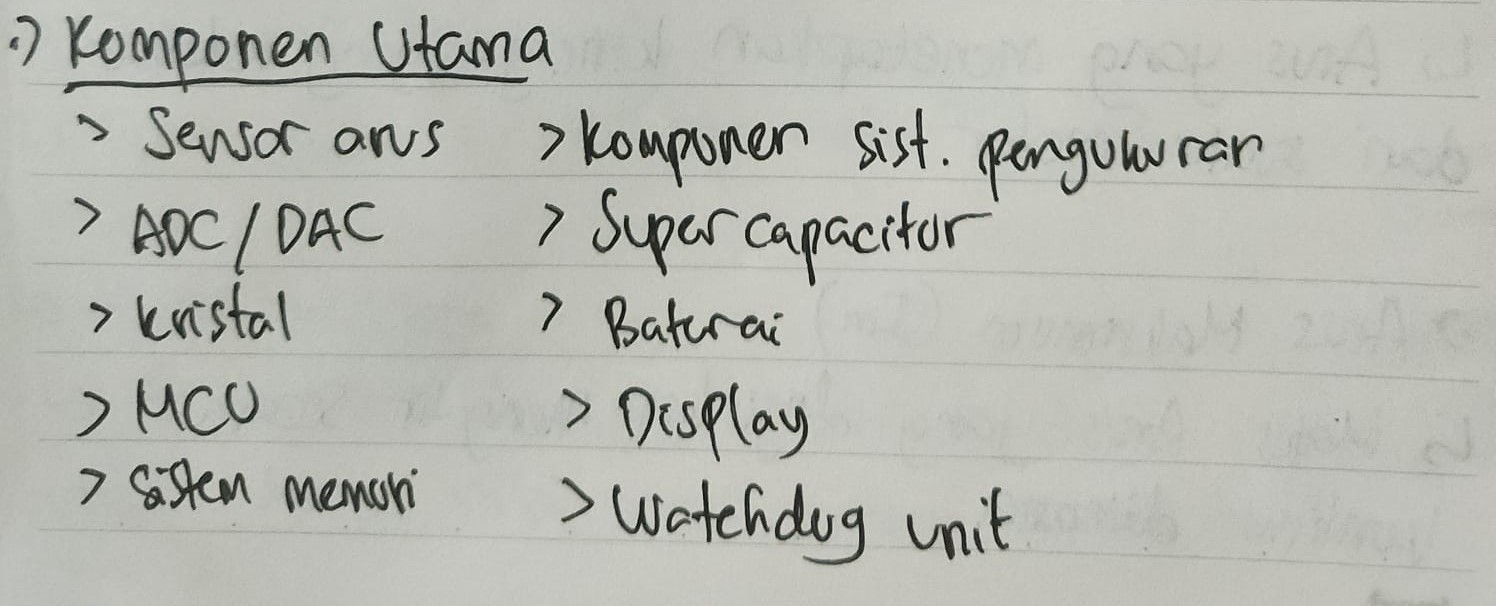 .) Komponen Utama
> Sensor arus
> ADC/DAC
> kristal
> MCU
> Sistem memori
> Komponen sist. pengukuran
> Supercapacitor
> Baterai
> Display
> Watchdog unit